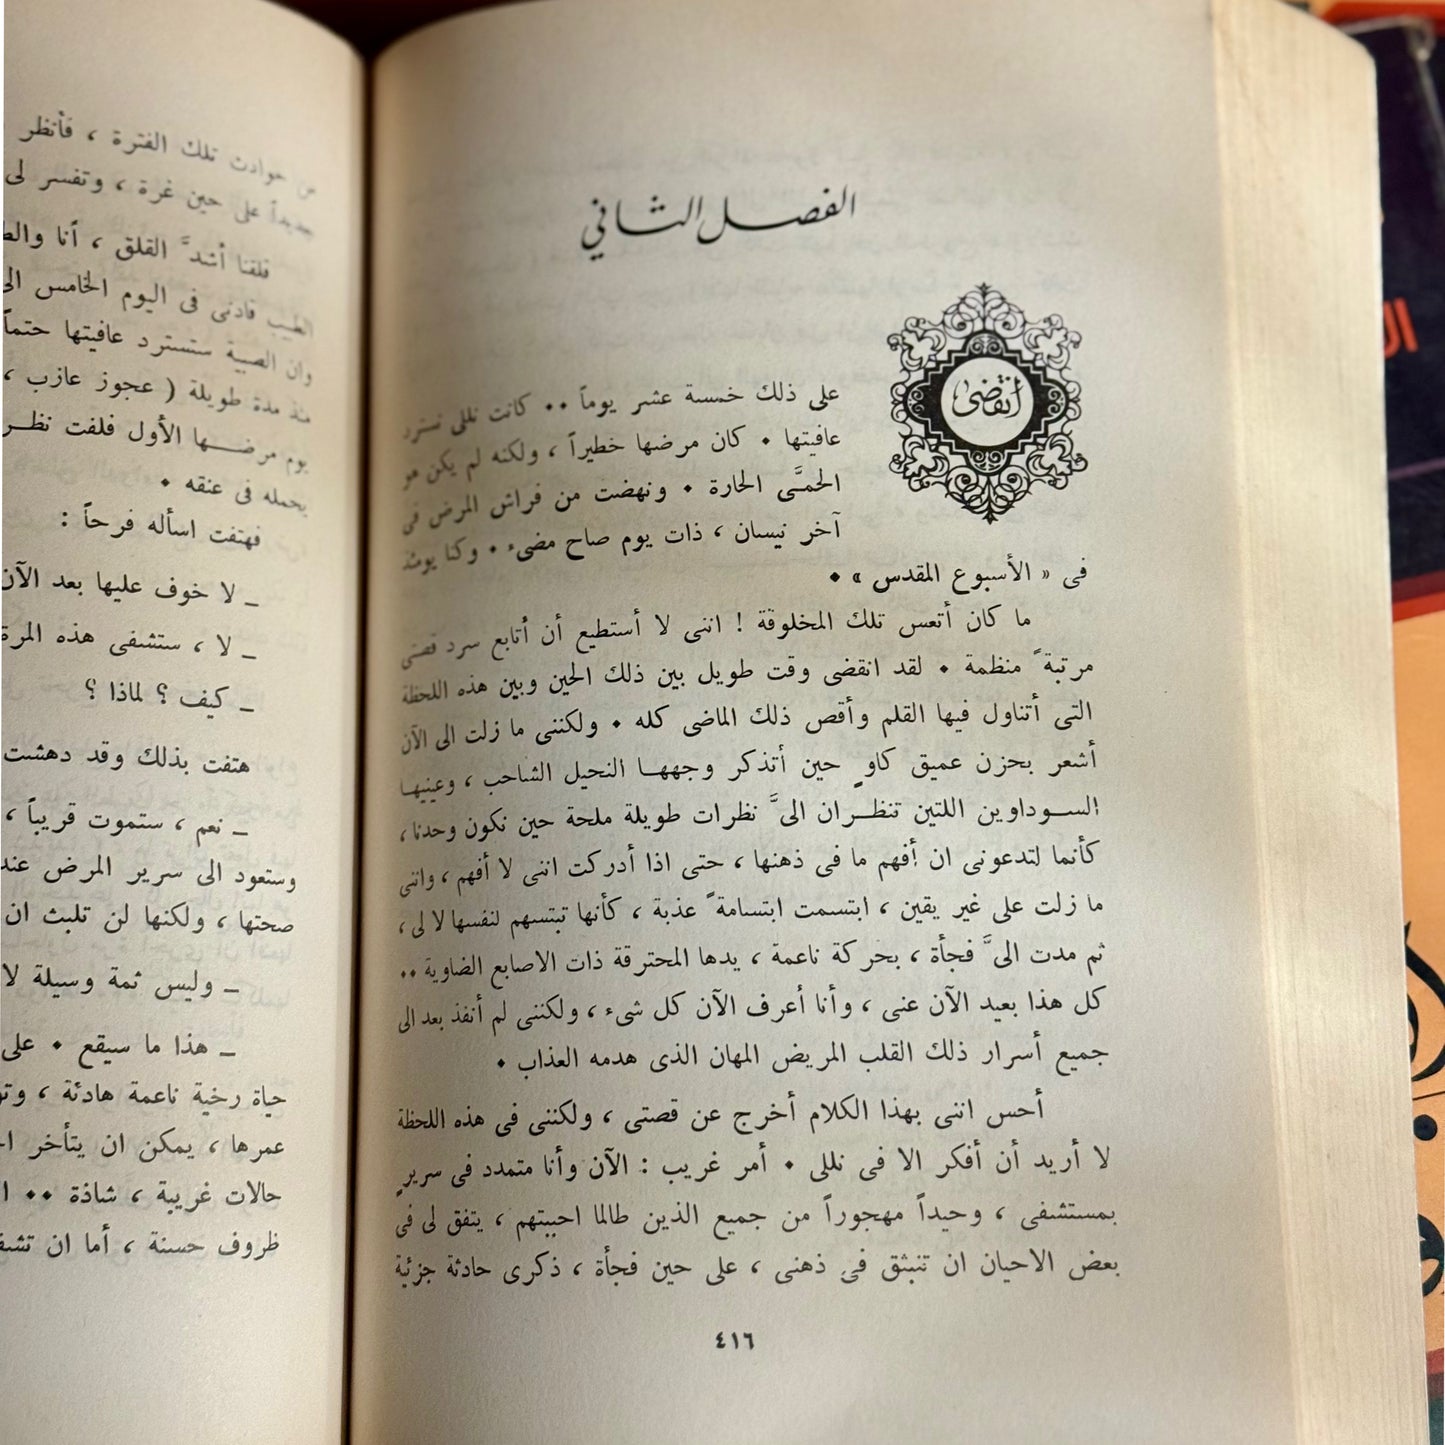 الفصل الثاني
انقضى
على ذلك خمسة عشر يوماً ·· كانت نللى تسترد
عافيتها · كان مرضها خطيراً ، ولكنه لم يكن هو
الحمَّى الحارة · ونهضت من فراش المرض فى
آخر نيسان ، ذات يوم صاح مضىء · وكنا يومئذ
فى « الأسبوع المقدس » ·
ما كان أتعس تلك المخلوقة ! اننى لا أستطيع أن أتابع سرد قصتى
مرتبةً منظمة · لقد انقضى وقت طويل بين ذلك الحين وبين هذه اللحظة
التى أتناول فيها القلم وأقص ذلك الماضى كله · ولكننى ما زلت الى الآن
أشعر بحزن عميق كاوٍ حين أتذكر وجهها النحيل الشاحب ، وعينيها
السوداوين اللتين تنظران الىَّ نظرات طويلة ملحة حين نكون وحدنا ،
كأنما لتدعونى ان أفهم ما فى ذهنها ، حتى اذا أدركت اننى لا أفهم ، واننى
ما زلت على غير يقين ، ابتسمت ابتسامةً عذبة ، كأنها تبتسهم لنفسها لا لى ،
ثم مدت الىَّ فجأة ، بحركة ناعمة ، يدها المحترقة ذات الاصابع الضاوية ··
كل هذا بعيد الآن عنى ، وأنا أعرف الآن كل شىء ، ولكننى لم أنفذ بعد الى
جميع أسرار ذلك القلب المريض المهان الذى هدمه العذاب ·
أحس اننى بهذا الكلام أخرج عن قصتى ، ولكننى فى هذه اللحظة
لا أريد أن أفكر الا فى نللى · أمر غريب : الآن وأنا متمدد فى سريرٍ
بمستشفى ، وحيداً مهجوراً من جميع الذين طالما احببتهم ، يتفق لى فى
بعض الاحيان ان تنبثق فى ذهنى ، على حين فجأة ، ذكرى حادثة جزئية
٤١٦
من حوادث تلك الفترة ، فأنظر
جديداً على حين غرة ، وتفسر لى
قلقنا أشدَّ القلق ، أنا
الطبيب قادنى فى اليوم الخامس
وان الصبية ستسترد عافيتها حتماً
منذ مدة طويلة ( عجوز عازب ،
يوم مرضها الأول فلفت نظر
يحمله فى عنقه ·
فهتفت اسأله فرحاً :
ـ لا خوف عليها بعد الآن
ـ لا ، ستشفى هذه المرة
ـ كيف ؟ لماذا ؟
هتفت بذلك وقد دهشت
ـ نعم ، ستموت قريباً ،
وستعود الى سرير المرض
صحتها ، ولكنها لن تلبث ان
ـ وليس ثمة وسيلة
ـ هذا ما سيقع · على
حياة رخية ناعمة هادئة ،
عمرها ، يمكن ان يتأخر
حالات غريبة ، شاذة ··
ظروف حسنة ، أما ان